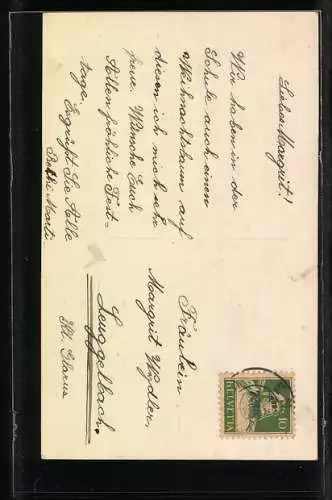 Liebes Margrit!
Wir haben in der
Schule auch einen
Weihnachtsbaum auf
diesen ich mich sehr
freue. Wünsche Euch
Allen fröhliche Fest=
tage. Es grüßt Sie Alle
Marti.
Fräulein
Margrit Wydler,
Luggelbach.
Kt. Glarus
HELVETIA
10